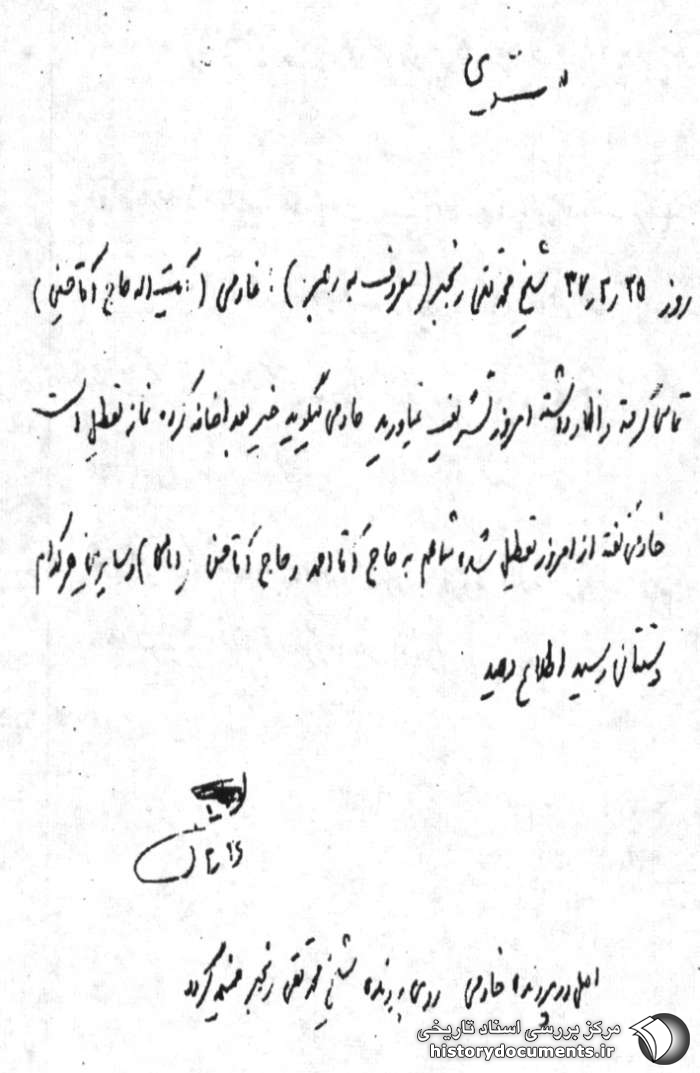 روز ۳۷٫۲٫۲۵ شیخ محمدتقی رنجبر (معروف به رهبر) به خادمی (آیت‌اله حاج آقا حسین)
تماس گرفته و اظهار داشته امروز تشریف نیاورید خادمی میگوید خیر بعد اضافه کرده نماز تعطیل است
خادمی گفته از امروز تعطیل شده شما هم به حاج آقا احمد و حاج آقا حسن (امامی) و سایرین هرکدام
دستتان رسید اطلاع دهید
۲٫۲۶
اصل در پرونده خادمی روی پرونده شیخ محمدتقی رنجبر ضمیمه گردد
مرکز بررسی اسناد تاریخی
historydocuments.ir